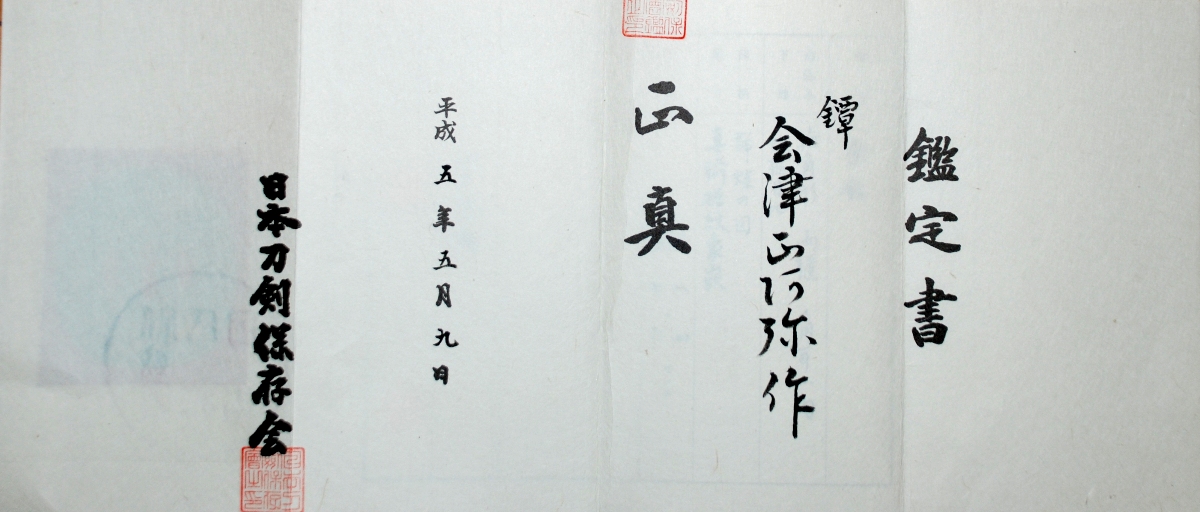 鑑定書
鐔
会津正阿弥作
正真
平成五年五月九日
日本刀剣保存会